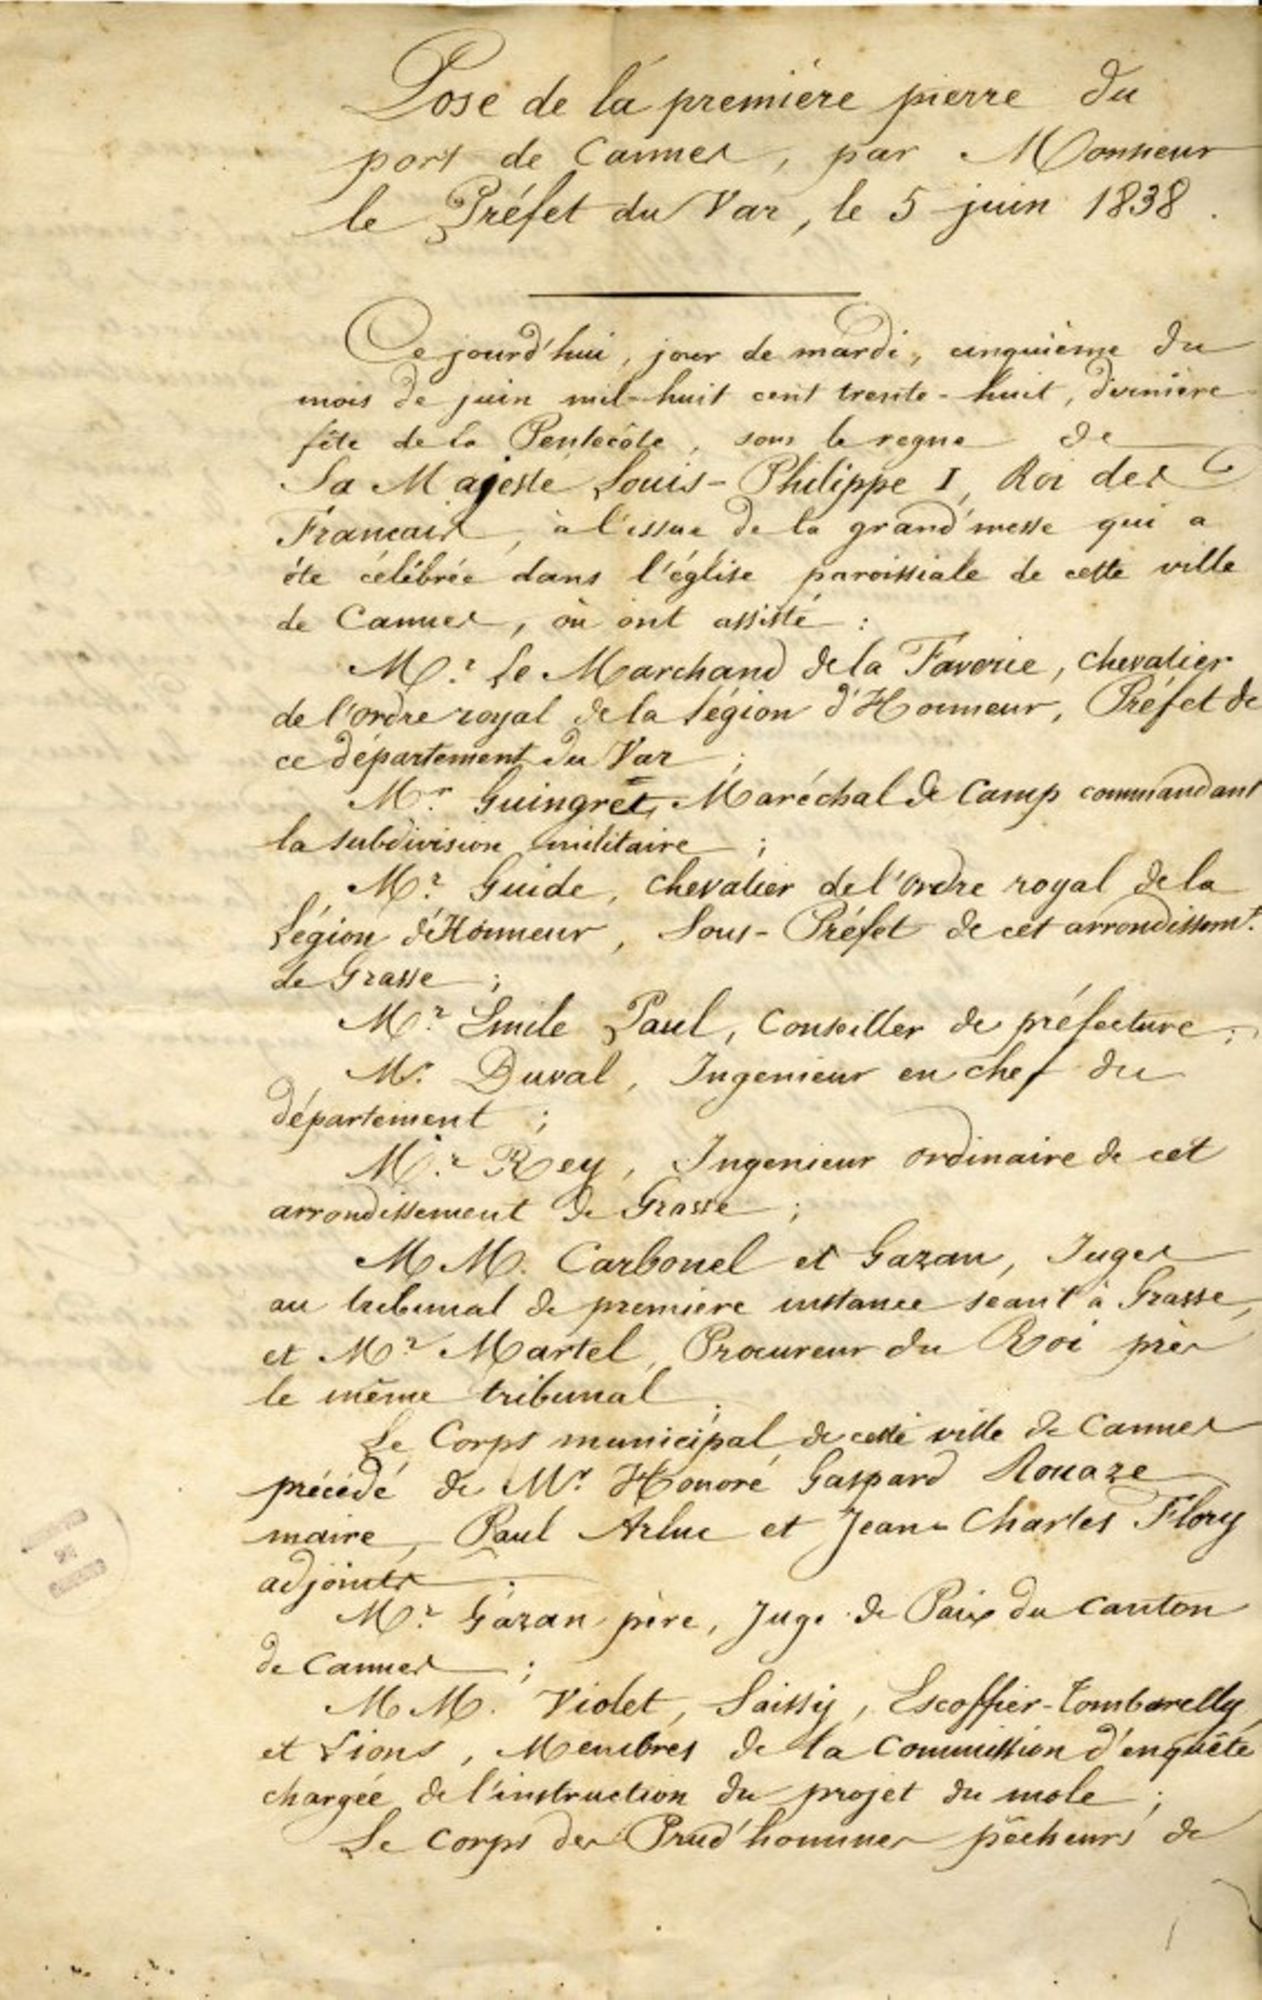 Pose de la première pierre du
port de Cannes, par Monsieur
le Préfet du Var, le 5 juin 1838.
Ce jourd'hui, jour de mardi, cinquième du
mois de juin mil-huit cent trente-huit, dernière
fête de la Pentecôte, sous le regne de
Sa Majesté Louis-Philippe I, Roi des
Français, à l'issue de la grand'messe qui a
été célébrée dans l'église paroissiale de cette ville
de Cannes, où ont assisté :
Mr. Le Marchand de la Faverie, chevalier
de l'ordre royal de la Légion d'Honneur, Préfet de
ce département du Var ;
Mr. Guingret, Maréchal de Camp commandant
la subdivision militaire ;
Mr. Guide, chevalier de l'ordre royal de la
Légion d'Honneur, Sous-Préfet de cet arrondissemt.
de Grasse ;
Mr. Emile Paul, Conseiller de préfecture ;
Mr. Duval, Ingenieur en chef du
département ;
Mr. Rey, Ingenieur ordinaire de cet
arrondissement de Grasse ;
MM. Carbonel et Gazan, Juges
au tribunal de première instance seant à Grasse,
et Mr. Martel, Procureur du Roi près
le même tribunal.
Le Corps municipal de cette ville de Cannes
précédé de Mr. Honoré Gaspard Rouaze
maire, Paul Arluc et Jean-Charles Flory
adjoints.
Mr. Gazan père, Juge de Paix du Canton
de Cannes ;
MM. Violet, Saissy, Escoffier-Tombarelly,
et Lions, Membres de la Commission d'enquête
chargée de l'instruction du projet du mole ;
Le Corps des Prud'hommes pêcheurs de
ARCHIVES
DE
CANNES